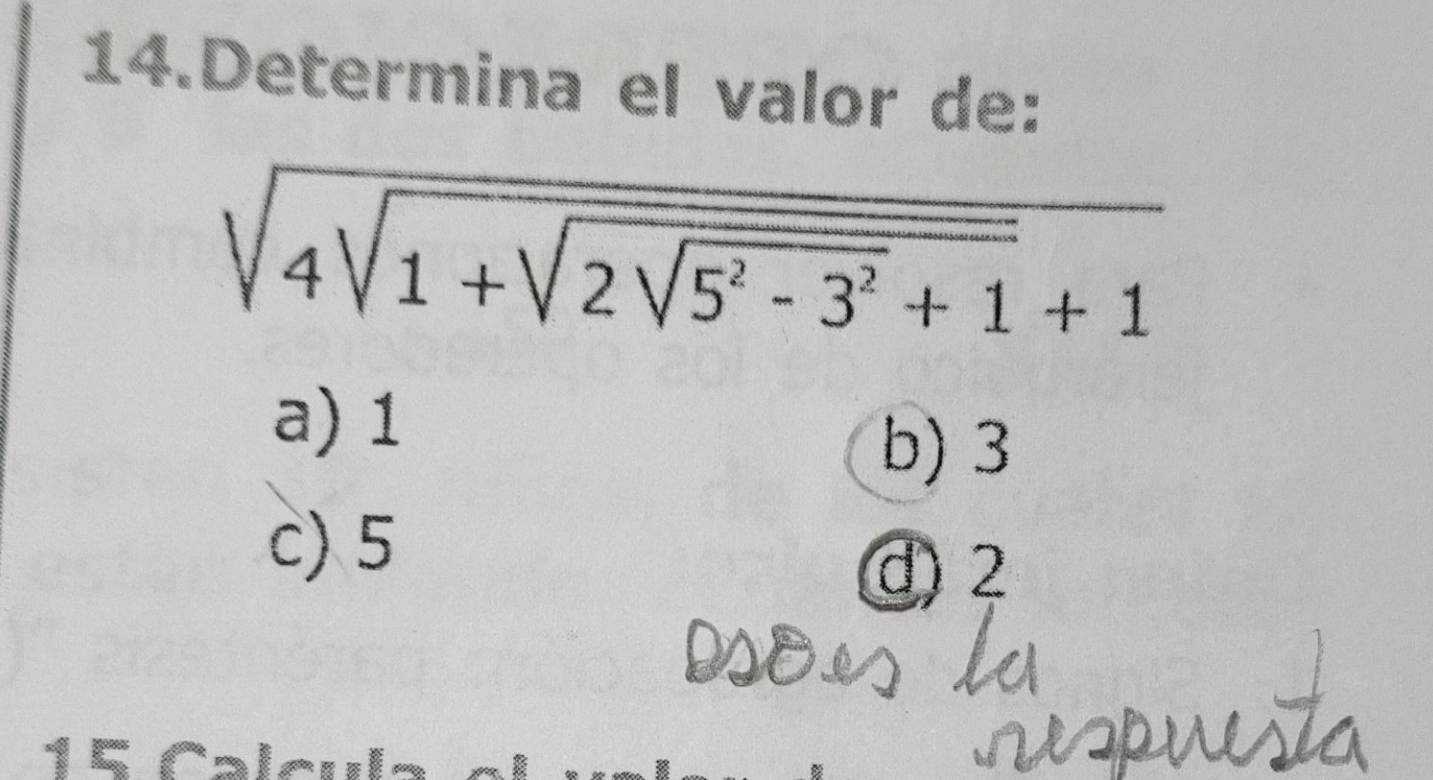 14.Determina el valor de:
√4√1 + √2√5² - 3² + 1 + 1
a) 1
b) 3
c) 5
d) 2
eso es la
respuesta
15.Calcula el valor d